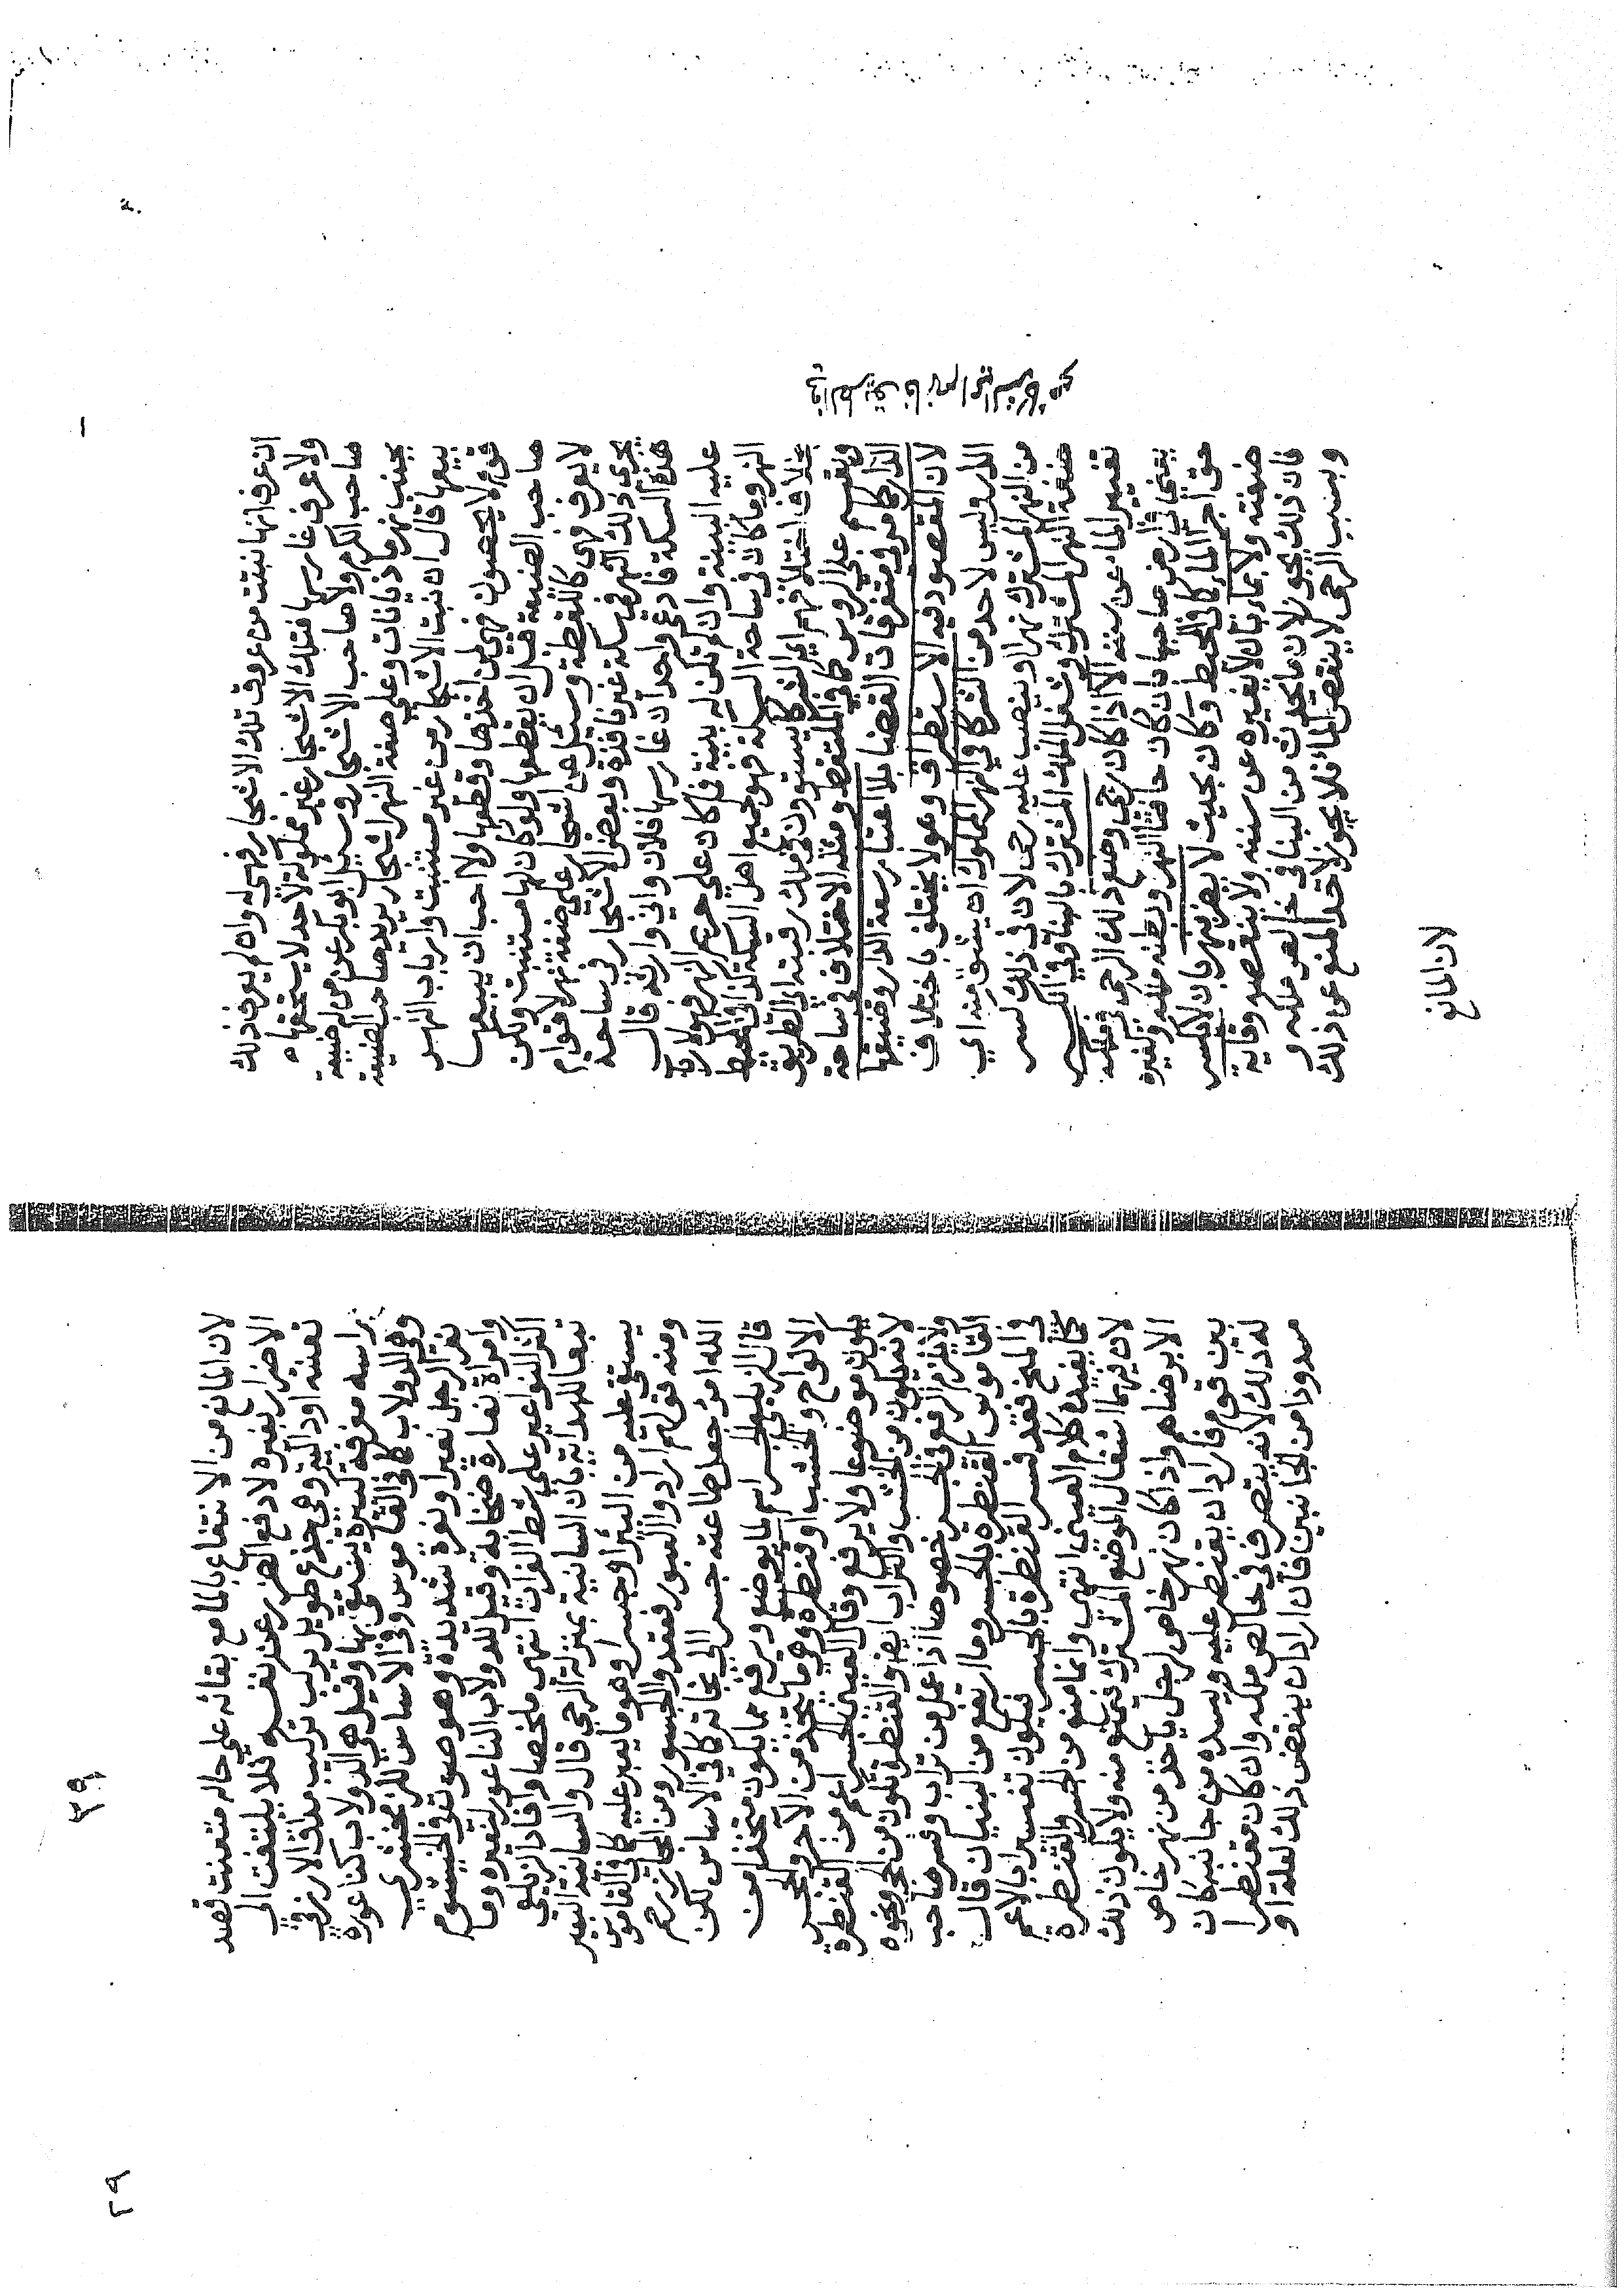 ان عرف انها نبتت من عروق تلك الاشجار فهي له وان لم يعرف ذلك
ولا عرف غارسها فتلك الاشجار غير مملوكة لاحد لا يستحقها
صاحب الكرم ولا صاحب الاشجار وسئل ابو بكر عمن له ضيعة
بجنب نهر ماذيانات وعلى ضفة النهر اشجار يريد صاحب الضيعة
بيعها قال ان نبت الاشجار من غير مستنبت وارباب النهر
قوم لا يحصون فهي لمن اخذها وقطعها ولا احب ان يبيعها
صاحب الضيعة قبل ان يقطعها ولو كان لها مستنبت ولكن
لا يعرف فهي كاللقطة وسئل عن اشجار على ضفة نهر لاقوام
يجري ذلك النهر في سكة غير نافذة وبعض الاشجار في ساحة
هذه السكة فادعى واحد ان غارسها فلان واني وارثه قال
عليه البينة وان لم تكن له بينة فما كان على حريم النهر فهو لارباب
النهر وما كان في ساحة السكة فهو لجميع اهل السكة كذا في المحيط
بخلاف اختلافهم اي الشركا يستوون في ملك رقبة اي الطريق
ويقسم على الروس كما في الملتقط ومثله الاختلاف في ساحة
الدار كما مر في متفرقات القضا بلا اعتبار سعة الدار وضيقها
لان المقصود فيه الاستطراق وهو لا يختلف باختلاف
الدار وليس لاحد من الشركا في النهر المملوك ان يشق منه اي
من النهر المشترك نهرا او ينصب عليه رحى لان في ذلك كسر
ضفة النهر المشترك وشغل الملك المشترك بالبنا وفي الكسر
تغيير الما عن سننه الا اذا كان رحى وضع ذلك الرحى في ملكه
يعني في ارض صاحبها بان كان حافتا النهر وبطنه ملكه ولغيره
حق اجرا الماء كما في المحيط وكان بحيث لا يضر بنهر بان لا يكسر
ضفته ولا بماء بان لا يغيره عن سننه ولا ينقصه وقاية
فان ذلك يجوز لان ما يحدث من البنا في خالص ملكه و
وبسبب الرحى لا ينقص الماء فلا يجوز لاحد المنع عن ذلك
لان المانع
٣٩
لان المانع من الانتفاع بالما مع بقائه على حاله متعنت قصد
الاضرار بغيره لا دفع الضرر عن نفسه فلا يلتفت الى
تعنته او دالية وهي جذع طويل يركب تركيب مداق الارز وفي
راسه مغرفة كبيرة يستقى بها وقيل هي الدولاب كناعورة
وهي الدولاب كما في القاموس وفي الاساس للزمخشري
نعر الرجل نعيرا ونعرة شديدة وهو صوت في الخيشوم
وامراة نعارة صخابة وقيل للدولاب الناعور لنعيره وما
اكثر النواعير على شط الفرات انتهى ملخصا وافاد الزيلعي
تبعا للهداية بان السانية بمنزلة الرحى قال والسانية البعير
يستقى عليه من البئر او جسر وهو ما يعبر عليه كما في القاموس
ومنه قولهم ارادوا العبور فعقدوا الجسور ومن المجاز رحم
الله امرءا جعل طاعته جسرا الى نجاته كما في الاساس لكن
قال الزيلعي الجسر اسم لما يوضع ويرفع مما يكون متخذا من
الالواح والخشب او قنطرة وهي ما يتخذ من الآجر والحجر
يكون موضوعا ولا يرفع وقال العيني الجسر اعم من القنطرة
لانه يكون من الخشب والتراب ايضا والقنطرة تكون من الحجر ونحوه
ولا يلزم الرفع في الجسر خصوصا اذا عمل من تراب وفسر صاحب
القاموس القنطرة بالجسر وما ارتفع من البنيان قال
في المنح فقد فسر القنطرة بالجسر فيكون تفسيرا بالاعم
كما يفيده كلام العيني انتهى وانما منع من الجسر والقنطرة
لان فيهما اشغال الموضع المشترك فيمنع منه ولا يكون ذلك
الا برضاهم واذا كان نهر خاص لرجل ياخذ من نهر خاص
بين قوم فاراد ان يقنطر عليه ويسده من جانبه كان
له ذلك لانه يتصرف في خالص ملكه وان كان مقنطرا
مسدودا من الجانبين فان اراد ان ينقض ذلك لعلة او
٢٩